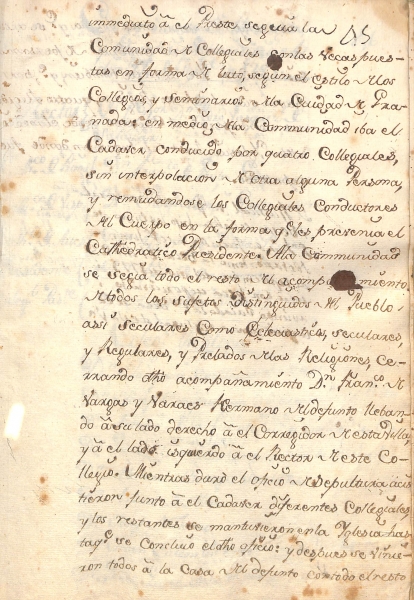 immediato â el Preste seguia la
Comunidad de Collegiales con las Vecas pues-
tas en forma de luto, segun el estilo de los
Collegios, y semenarios de la Cuidad de Gra-
nada: en medio, de la Communidad iba el
Cadaver conducido por quatro Collegiales,
sin interpolacion de otra alguna Persona,
y remudandose los Collegiales Conductores
del Cuerpo en la forma q.e les prescrivia el
Cathedratico Presidente. A la Communidad
se seguia todo el resto del acompañamiento
de todos los sujetos Distinguidos del Pueblo
assi seculares como Eclesiasticos, seculares,
y Regulares, y Prelados de las Religiones, ce-
rrando dho acompañamiento D.n Fran.co de
Vargas y Varaes Hermano del defunto lleban-
do â su lado derecho â el Corregidor de esta Villa,
y â el lado isquierdo â el Rector de este Co-
llegio. Mientras duró el oficio de sepultura acis-
tieron junto â el Cadaver diferentes Collegiales
y los restantes se mantuvieron en la Iglesia has-
ta q.e se concluio el dho oficio: y despues se vinie-
ron todos â la Casa del defunto con todo el resto